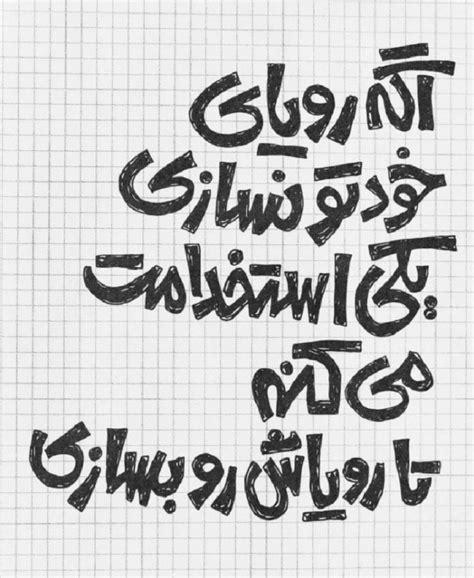 اگه رویای
خودتو نسازی
یکی استخدامت
می کنه
تا رویاش رو بسازی